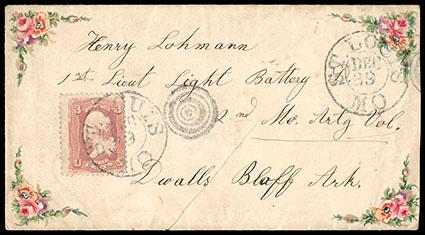 Henry Lohmann
1st Lieut Light Battery
2nd Mo. Arty Vol.
Dwalls Bluff Ark.
ST. LOUIS
DEC
29
MO
3 3
U S